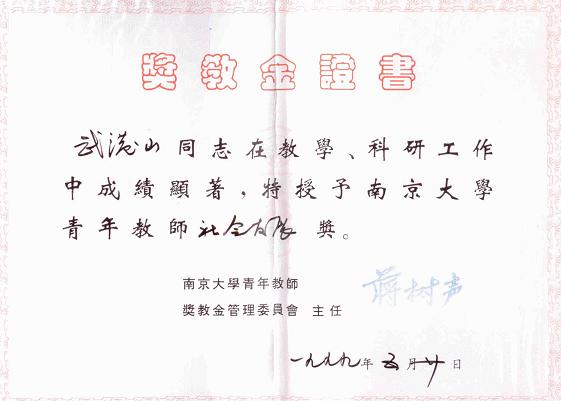 獎教金證書
武港山同志在教學、科研工作
中成績顯著，特授予南京大學
青年教師社獎。
南京大學青年教師
獎教金管理委員會 主任
蒋树声
一九九九年五月廿日